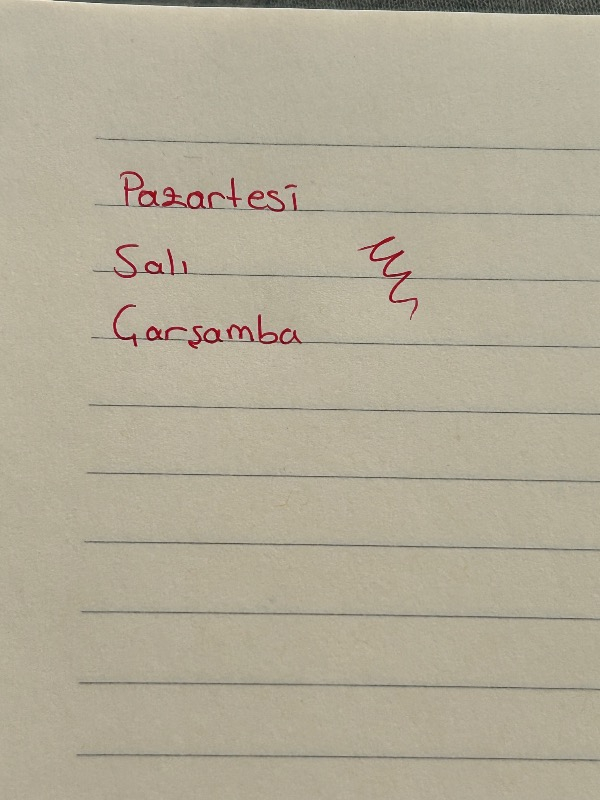 Pazartesi
Salı
Çarşamba